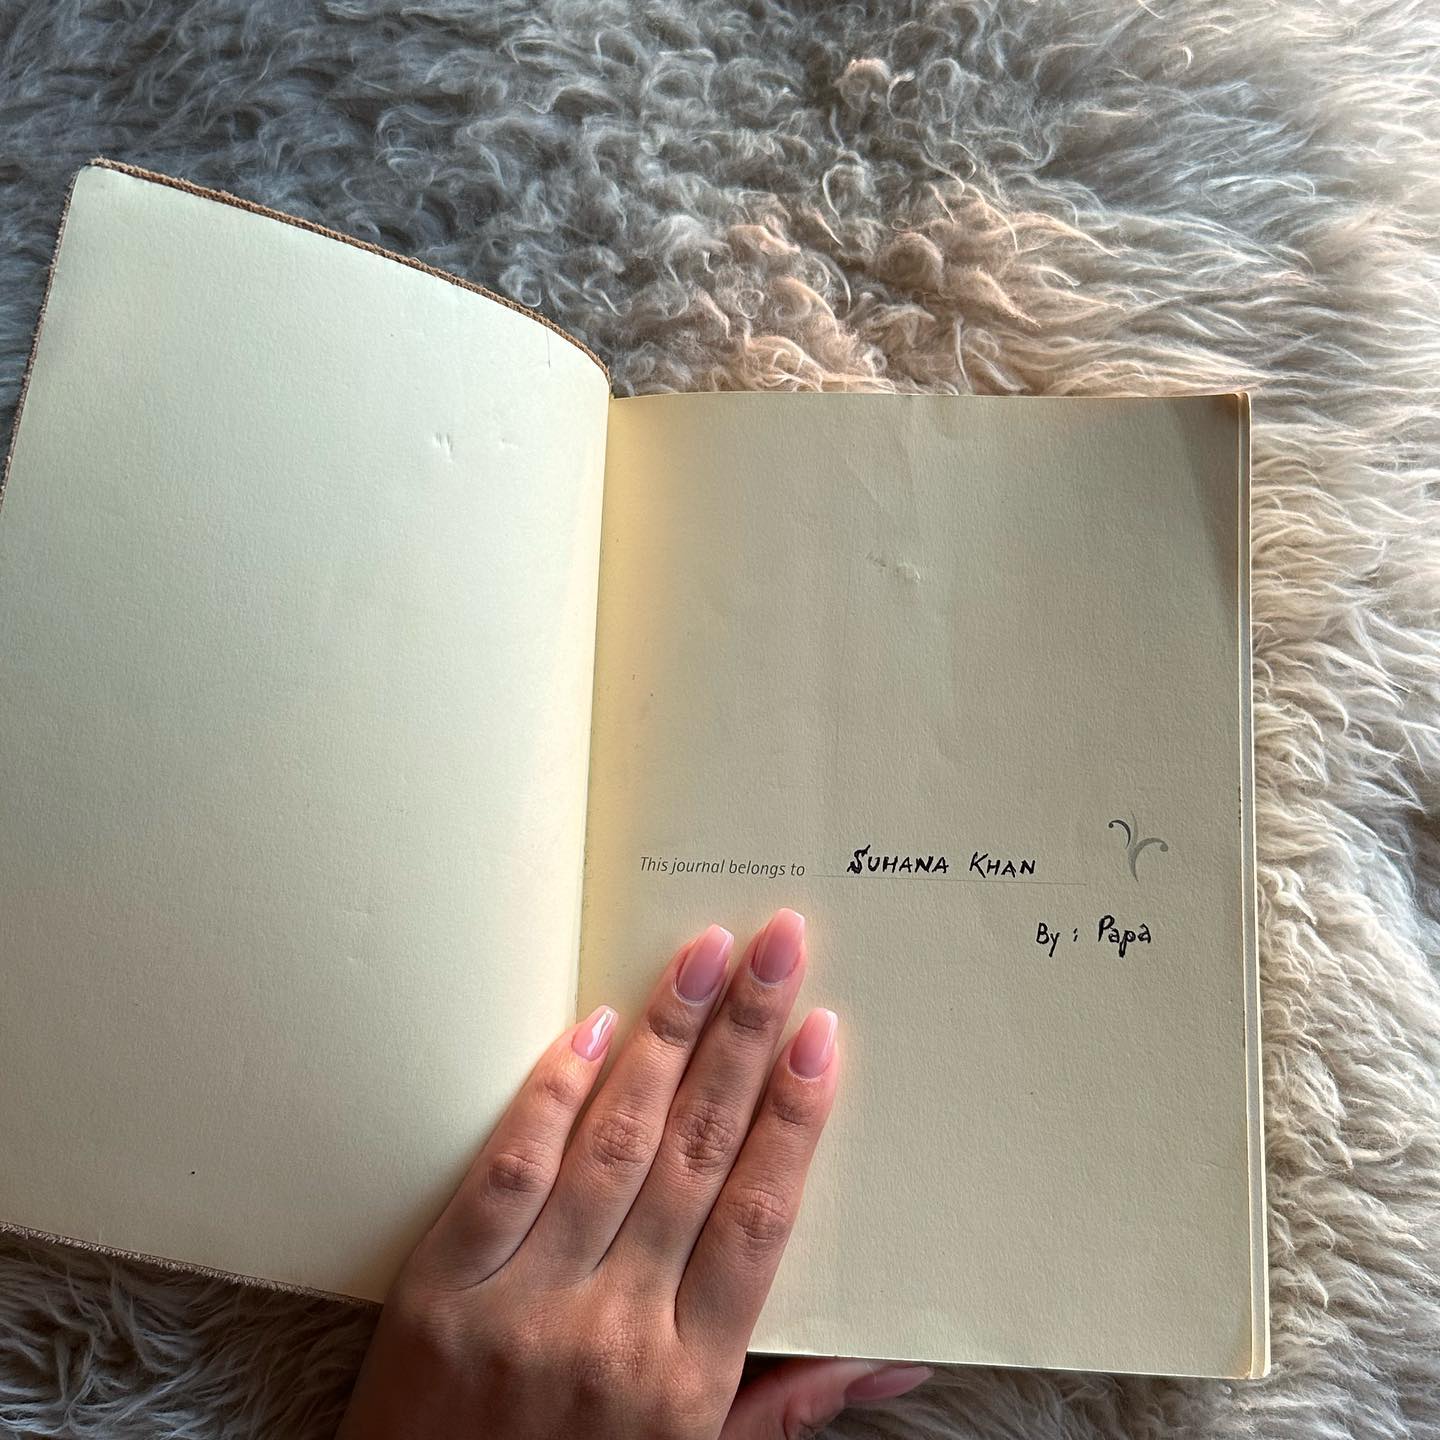 This journal belongs to SUHANA KHAN
By : Papa